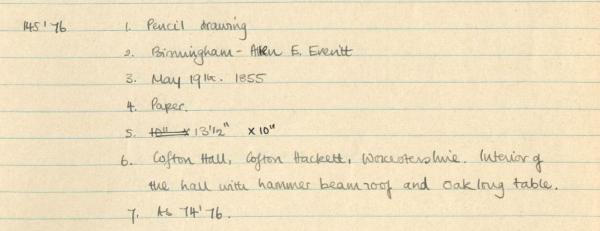 145'76 1. Pencil drawing
2. Birmingham - Allen E. Everitt
3. May 19th. 1855
4. Paper.
5. 10" x 13½" x 10"
6. Cofton Hall, Cofton Hackett, Worcestershire. Interior of
the hall with hammer beam roof and oak long table.
7. As 74'76.